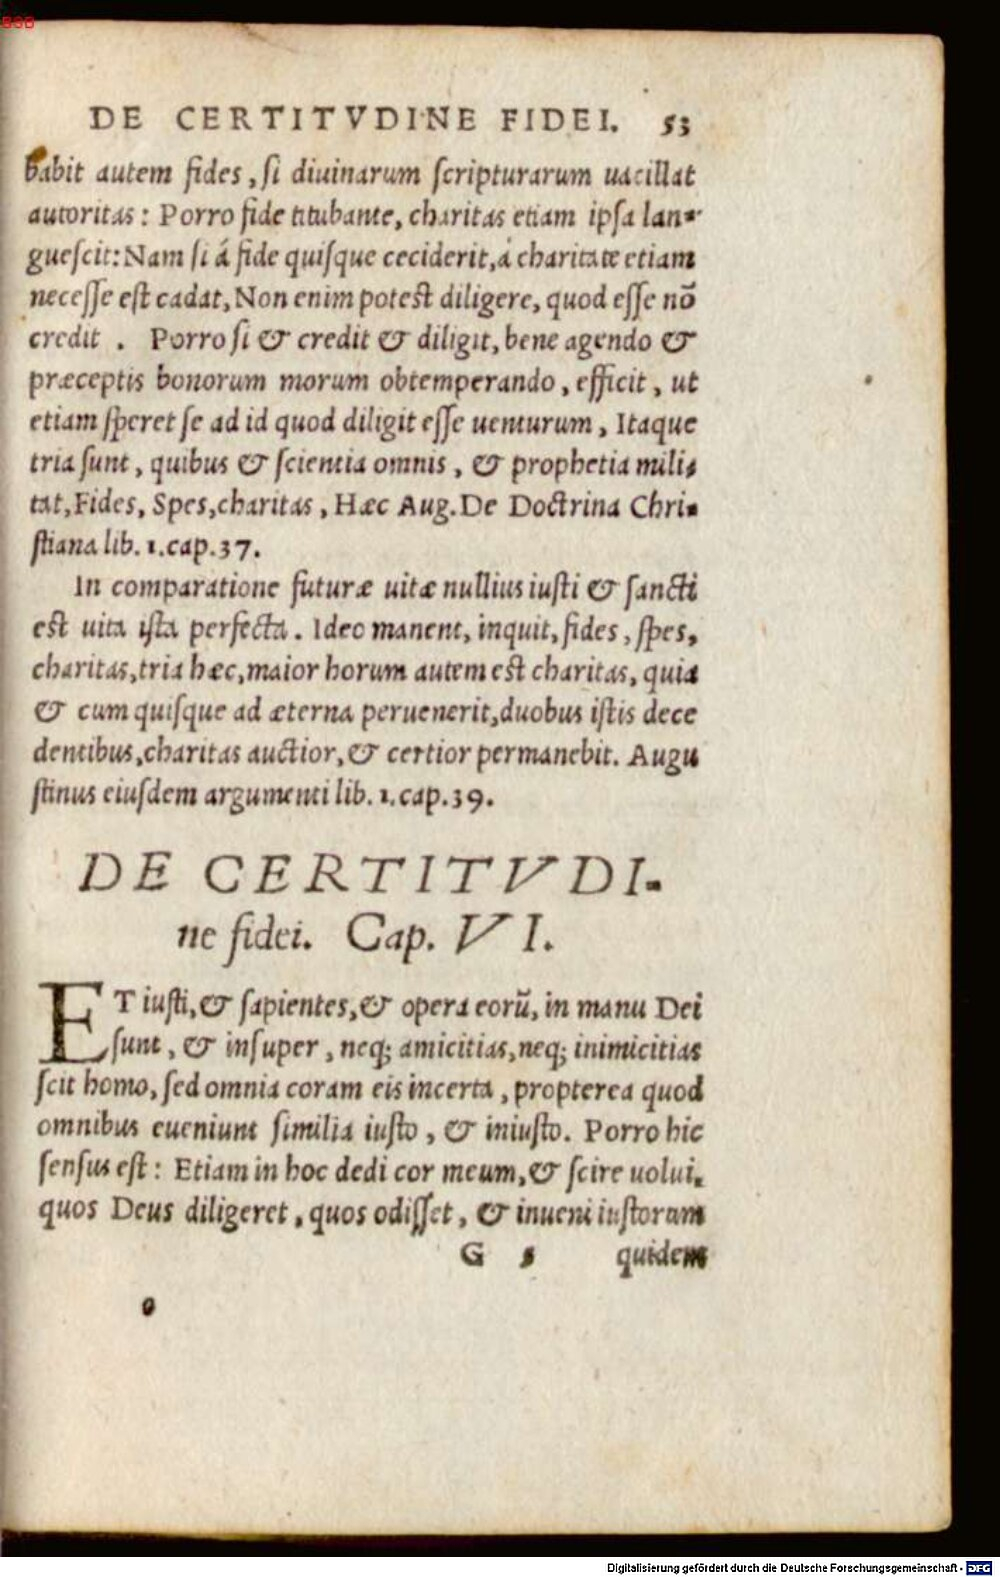 830
DE CERTITVDINE FIDEI. 53
babit autem fides, si diuinarum scripturarum uacillat
autoritas: Porro fide titubante, charitas etiam ipsa lan-
guescit: Nam si á fide quisque ceciderit, á charitate etiam
necesse est cadat, Non enim potest diligere, quod esse nō
credit. Porro si & credit & diligit, bene agendo &
præceptis bonorum morum obtemperando, efficit, ut
etiam speret se ad id quod diligit esse uenturum, Itaque
tria sunt, quibus & scientia omnis, & prophetia mili-
tat, Fides, Spes, charitas, Hæc Aug. De Doctrina Chri-
stiana lib. 1. cap. 37.
In comparatione futuræ uitæ nullius iusti & sancti
est uita ista perfecta. Ideo manent, inquit, fides, spes,
charitas, tria hæc, maior horum autem est charitas, quia
& cum quisque ad æterna peruenerit, duobus istis dece
dentibus, charitas auctior, & certior permanebit. Augu
stinus eiusdem argumenti lib. 1. cap. 39.
DE CERTITVDI-
ne fidei. Cap. VI.
ET iusti, & sapientes, & opera eorū, in manu Dei
sunt, & insuper, neq; amicitias, neq; inimicitias
scit homo, sed omnia coram eis incerta, propterea quod
omnibus eueniunt similia iusto, & iniusto. Porro hic
sensus est: Etiam in hoc dedi cor meum, & scire uolui.
quos Deus diligeret, quos odisset, & inueni iustorum
G 5 quidem
Digitalisierung gefördert durch die Deutsche Forschungsgemeinschaft - DFG